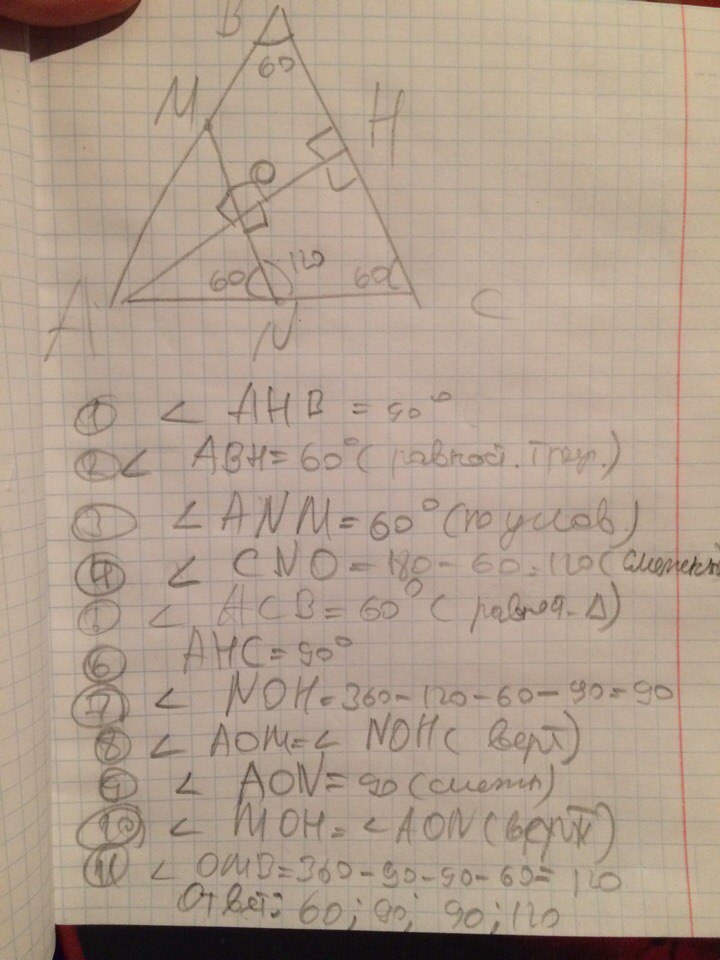 B
60
M
H
O
60
120
60
A
N
C
① < AHB = 90°
② < ABH = 60° (равной. треу.)
③ < ANM = 60° (по услов.)
④ < CNO = 180 - 60 = 120 (
⑤ < ACB = 60° (равной. Δ)
⑥ AHC = 90°
⑦ < NOH = 360 - 120 - 60 - 90 = 90
⑧ < AOM = < NOH (верт)
⑨ < AON = 90 (смежн)
⑩ < MOH = < AON (вертик)
⑪ < OMB = 360 - 90 - 90 - 60 = 120
Ответ: 60; 90; 90; 120